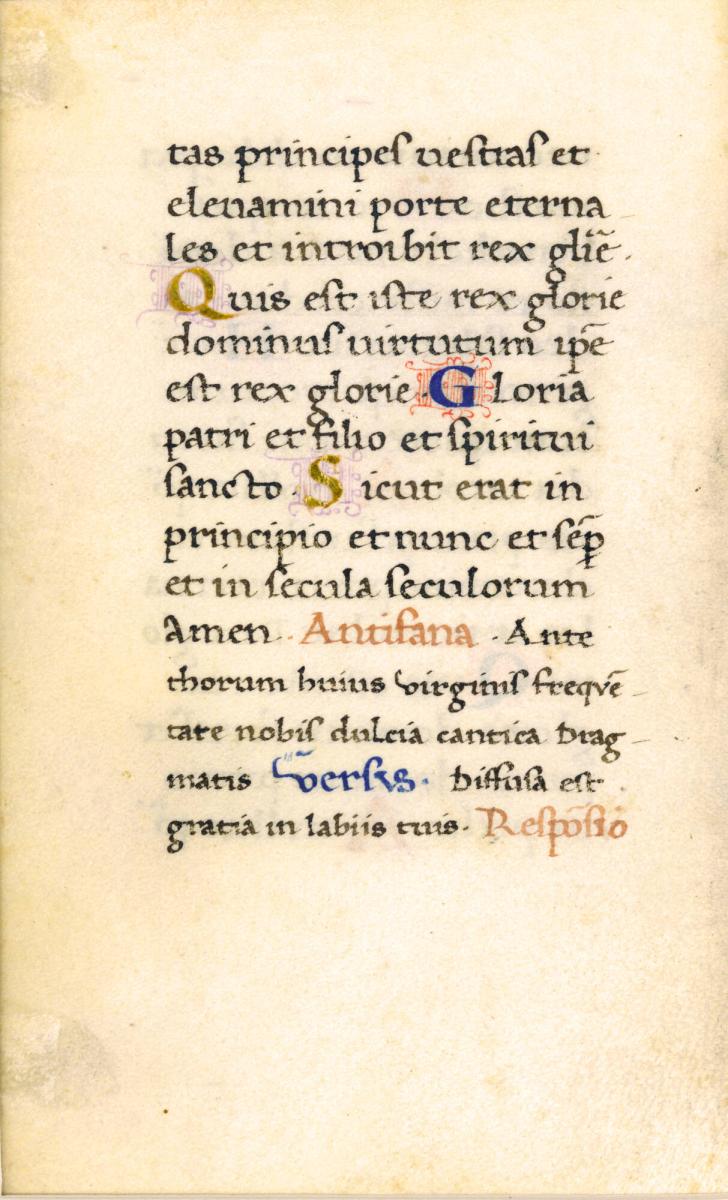 tas principeſ ueſtraſ et
eleuamini porte eterna
les et introibit rex gliē.
Quis est iste rex glorie
dominuſ uirtutum ipē
est rex glorie. Gloria
patri et filio et ſpiritui
ſancto. Sicut erat in
principio et nunc et ſēp
et in ſecula ſeculorum
Amen. Antifana. Ante
thorum huius virginiſ frequē
tate nobiſ dulcia cantica Drag
matis Versus. Diffuſa est
gratia in labiis tuis. Reſpōſio